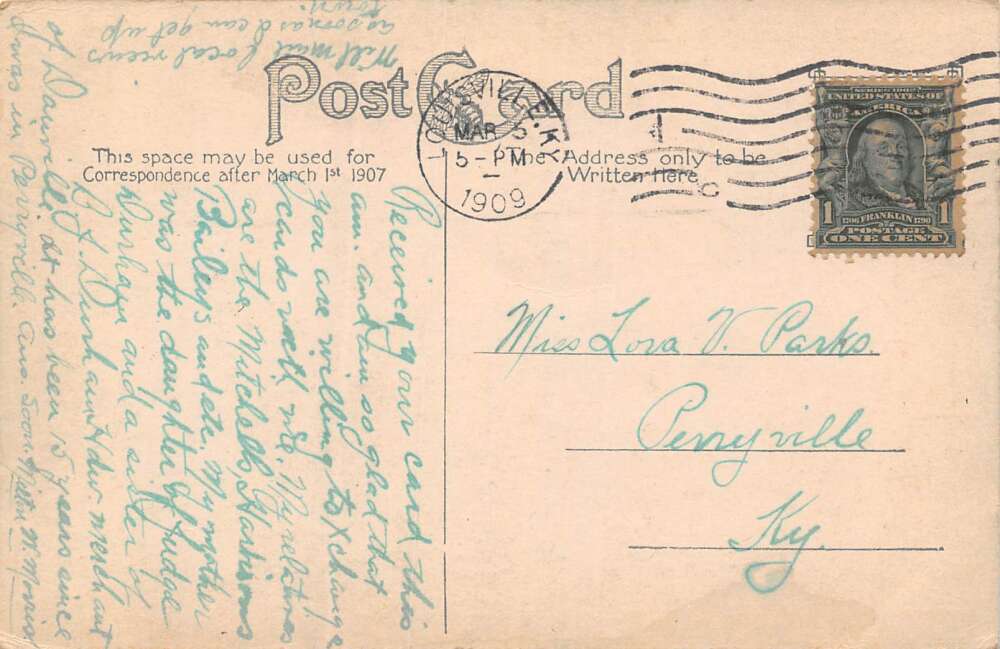 Post Card
This space may be used for
Correspondence after March 1st 1907
The Address only to be
Written Here
LOUISVILLE, KY.
MAR 5
5-PM
1909
SERIES 1902
UNITED STATES OF
AMERICA
1 1706 FRANKLIN 1790 1
POSTAGE
ONE CENT
Miss Lora V. Parks.
Perryville
Ky.
Received your card this
am. and am so glad that
you are willing to xchange
scands with me. My relatives
are the Mitchells, Harrisons
Baileys and etc. My mother
was the daughter of Judge
Durham and a sister to
B.J. Durham Hdw. merchant
of Danville. It has been 15 years since
I was in Perryville. Ans. Soon. Milton W.
Will mail local views
as soon as I can get up
town.